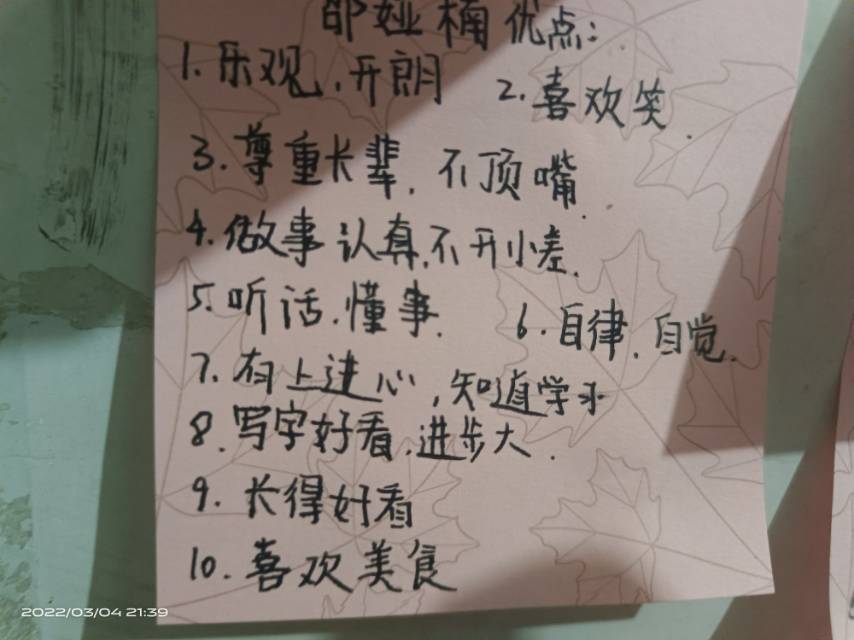 邵娅楠优点:
1. 乐观、开朗 2. 喜欢笑.
3. 尊重长辈, 不顶嘴.
4. 做事认真, 不开小差.
5. 听话、懂事. 6. 自律、自觉.
7. 有上进心, 知道学习
8. 写字好看, 进步大.
9. 长得好看
10. 喜欢美食
2022/03/04 21:39